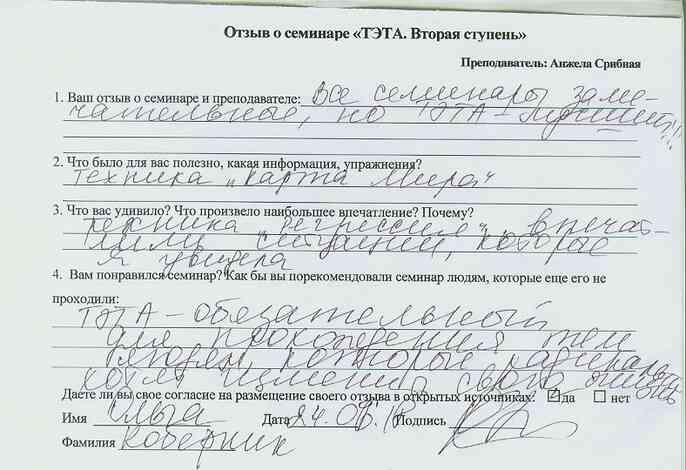 Отзыв о семинаре «ТЭТА. Вторая ступень»
Преподаватель: Анжела Срибная
1. Ваш отзыв о семинаре и преподавателе: Все семинары заме-
чательные, но ТЭТА - лучший!!!
2. Что было для вас полезно, какая информация, упражнения?
Техника „Карта Мира"
3. Что вас удивило? Что произвело наибольшее впечатление? Почему?
Техника „регрессия", впечат-
лили ситуации, которые
я увидела
4. Вам понравился семинар? Как бы вы порекомендовали семинар людям, которые еще его не
проходили:
ТЭТА - обязательный
для прохождения тем
людям, которые
хотят изменить свою жизнь
Даете ли вы свое согласие на размещение своего отзыва в открытых источниках? да нет
Имя Ольга Дата 24.08. Подпись
Фамилия Коберник